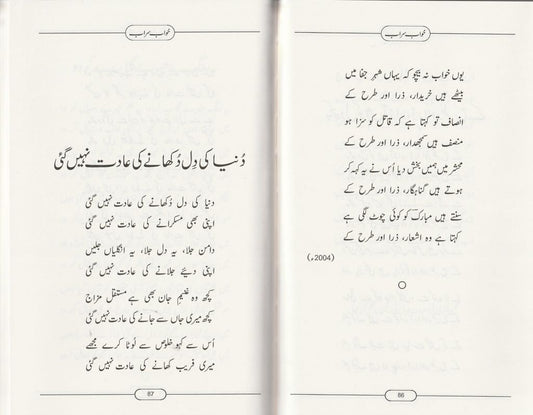 خواب سراب
یوں خواب نہ بیچو کہ یہاں شہرِ جفا میں
بیٹھے ہیں خریدار، ذرا اور طرح کے
انصاف تو کہتا ہے کہ قاتل کو سزا ہو
منصف ہیں سمجھدار، ذرا اور طرح کے
محشر میں ہمیں بخش دیا اُس نے یہ کہہ کر
ہوتے ہیں گناہگار، ذرا اور طرح کے
سنتے ہیں مبارکؔ کو کوئی چوٹ لگی ہے
کہتا ہے وہ اشعار، ذرا اور طرح کے
(2004ء)
86
خواب سراب
دُنیا کی دِل دُکھانے کی عادت نہیں گئی
دنیا کی دل دُکھانے کی عادت نہیں گئی
اپنی بھی مسکرانے کی عادت نہیں گئی
دامن جلا، یہ دل جلا، یہ انگلیاں جلیں
اپنی دیئے جلانے کی عادت نہیں گئی
کچھ وہ غنیمِ جان بھی ہے مستقل مزاج
کچھ میری جاں سے جانے کی عادت نہیں گئی
اُس سے کہو خلوص سے لوٹا کرے مجھے
میری فریب کھانے کی عادت نہیں گئی
87